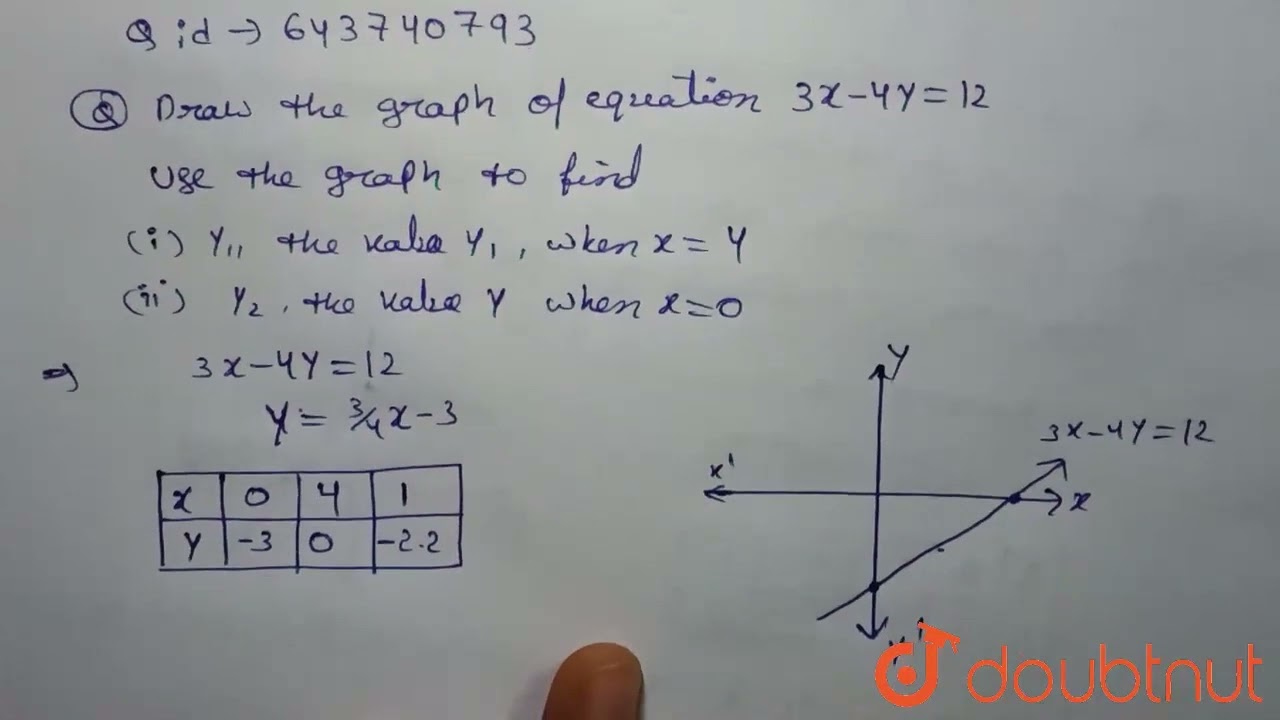 Q id → 643740793
Q Draw the graph of equation 3x-4y=12
Use the graph to find
(i) Y₁, the value Y₁, when x = 4
(ii) Y₂, the value Y when x=0
⇒ 3x-4Y=12
Y = 3/4x-3
x 0 4 1
Y -3 0 -2.2
y
3x-4Y=12
x'
x
y'
doubtnut